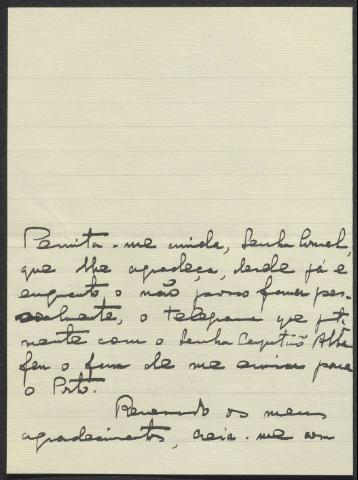 Permita-me ainda, Senhor Coronel,
que lhe agradeça, desde já e
enquanto o não posso fazer pes-
soalmente, o telegrama que jun-
tamente com o Senhor Capitão
fez o favor de me enviar para
o Porto.
Renovando os meus
agradecimentos, creia-me com